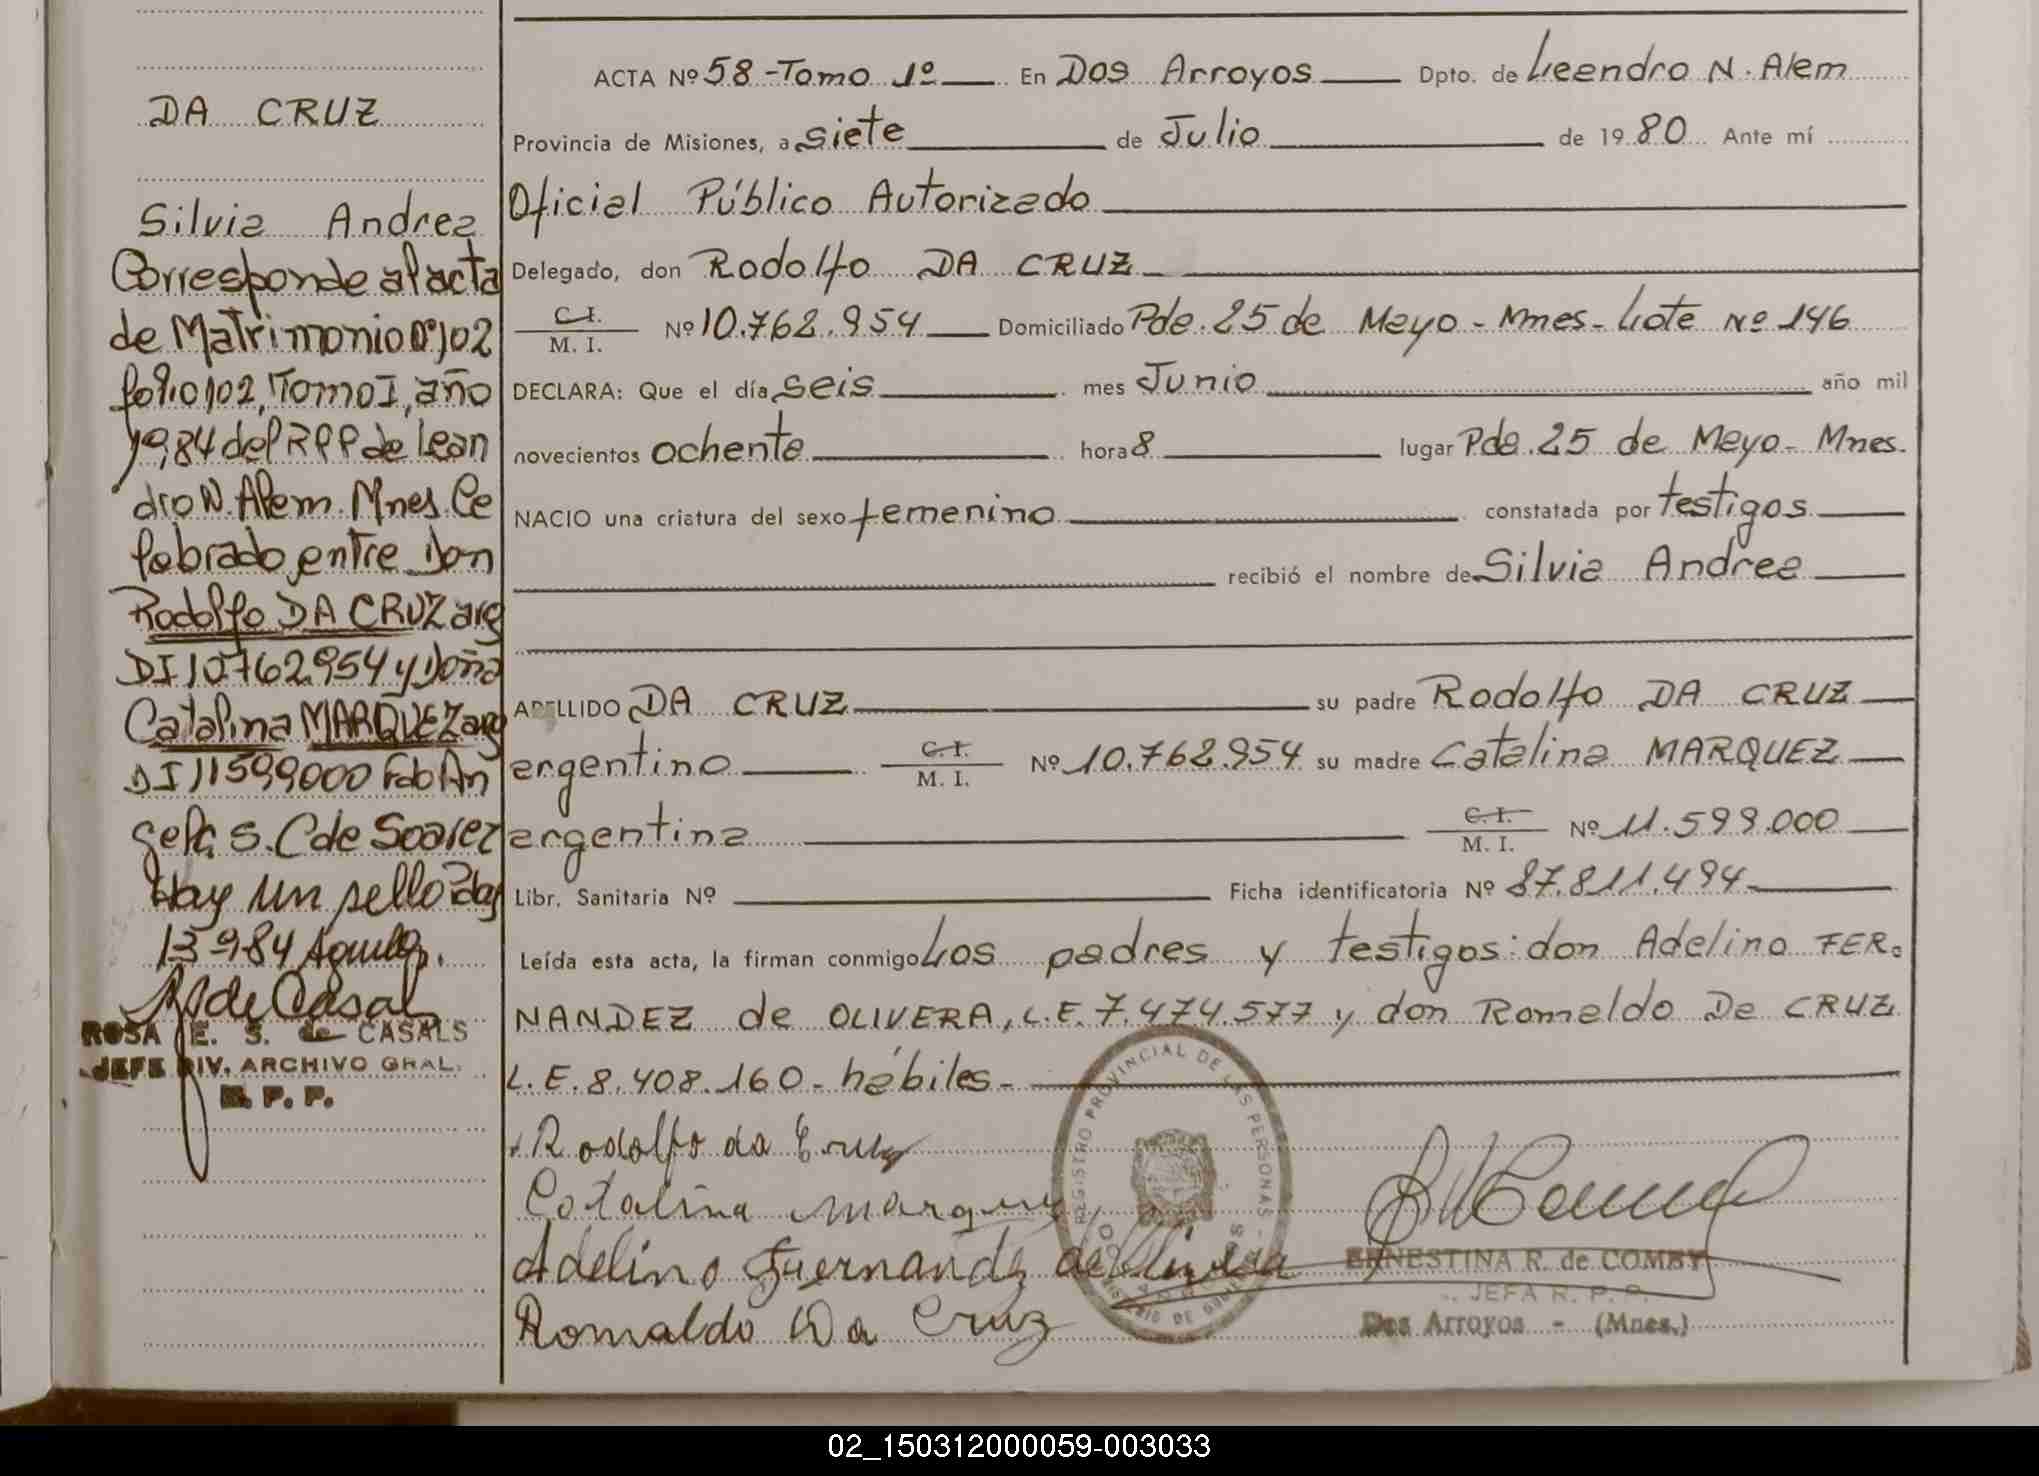 DA CRUZ
Silvia Andrea
Corresponde al acta
de Matrimonio Nº102
folio 102, Tomo I, año
1984 del RPP de Lean
dro N. Alem. Mnes. Ce
lebrado entre Don
Rodolfo DA CRUZ arg
DI 10762.954 y Doña
Catalina MARQUEZ arg
DI 11599000 Fdo An
gela S. C de Soarez
Hay un sello Pdas
13-9-84
ROSA E. S. de CASALS
JEFE DIV. ARCHIVO GRAL.
R. P. P.
ACTA Nº 58 - Tomo 1º En Dos Arroyos Dpto. de Leandro N. Alem
Provincia de Misiones, a siete de Julio de 19 80 Ante mí
Oficial Público Autorizado
Delegado, don Rodolfo DA CRUZ
C.I. / M. I. Nº 10.762.954 Domiciliado Pde. 25 de Mayo - Mnes - Lote Nº 146
DECLARA: Que el día seis mes Junio año mil
novecientos ochenta hora 8 lugar Pde. 25 de Mayo - Mnes.
NACIO una criatura del sexo femenino constatada por testigos
recibió el nombre de Silvia Andrea
APELLIDO DA CRUZ su padre Rodolfo DA CRUZ
argentino C.I. / M. I. Nº 10.762.954 su madre Catalina MARQUEZ
argentina C.I. / M. I. Nº 11.599.000
Libr. Sanitaria Nº Ficha identificatoria Nº 27.811.494
Leída esta acta, la firman conmigo Los padres y testigos: don Adelino FER.
NANDEZ de OLIVERA, L.E. 7.474.577 y don Romaldo Da CRUZ
L.E. 8.408.160 - hábiles -
Rodolfo da Cruz
Catalina Marquez
Adelino Fuernandz de Olivera
Romaldo Da Cruz
REGISTRO PROVINCIAL DE LAS PERSONAS
ERNESTINA R. de COMBY
JEFA R. P. P.
Dos Arroyos - (Mnes.)
02_150312000059-003033